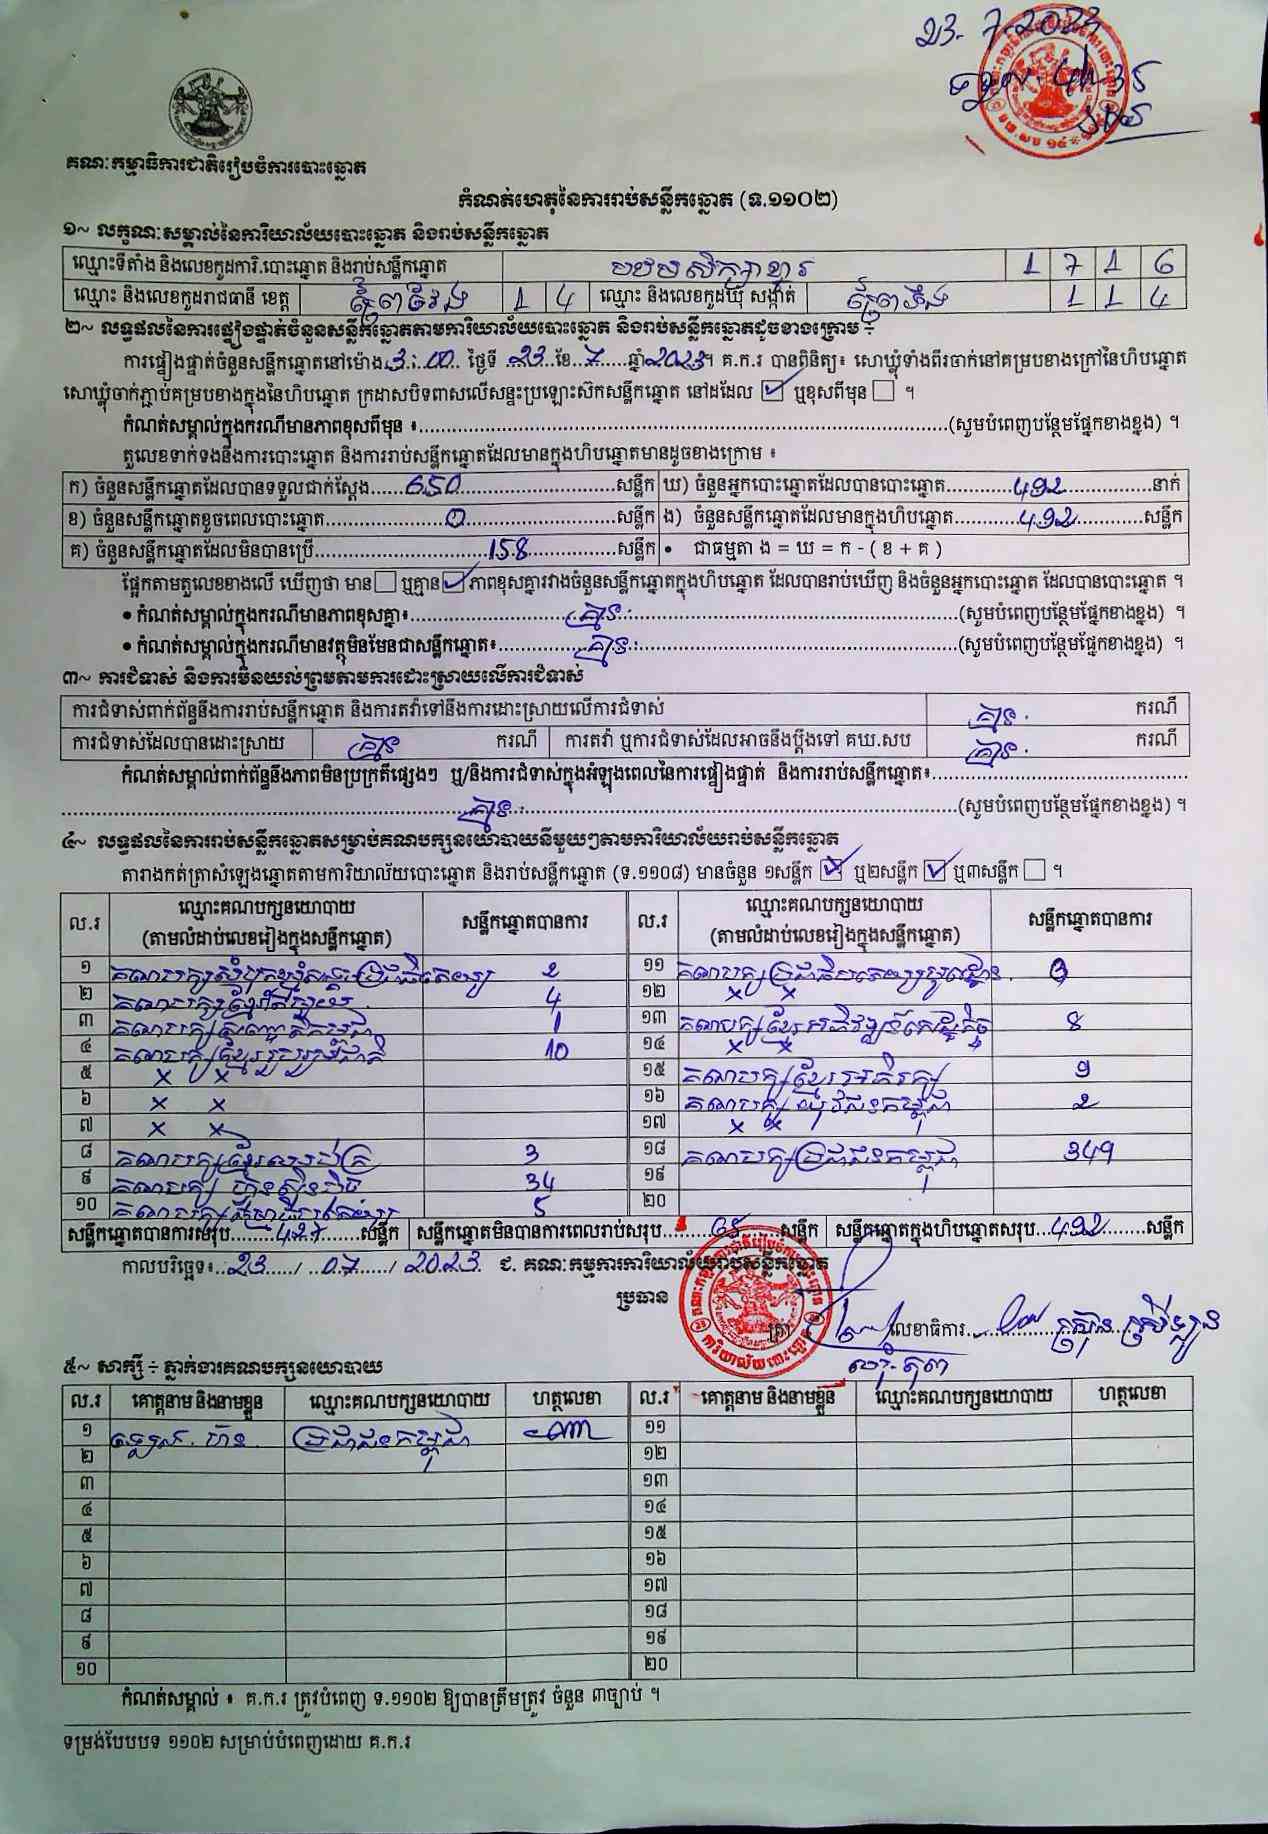 23-7-2023
4h35
គណៈកម្មាធិការជាតិរៀបចំការបោះឆ្នោត
កំណត់ហេតុនៃការរាប់សន្លឹកឆ្នោត (ទ.១១០២)
១~ លក្ខណៈសម្គាល់នៃការិយាល័យបោះឆ្នោត និងរាប់សន្លឹកឆ្នោត
ឈ្មោះទីតាំង និងលេខកូដការិ.បោះឆ្នោត និងរាប់សន្លឹកឆ្នោត បឋមសិក្សា 1 7 1 6
ឈ្មោះ និងលេខកូដរាជធានី ខេត្ត ព្រៃវែង 1 4 ឈ្មោះ និងលេខកូដឃុំ សង្កាត់ 1 1 4
២~ លទ្ធផលនៃការផ្ទៀងផ្ទាត់ចំនួនសន្លឹកឆ្នោតតាមការិយាល័យបោះឆ្នោត និងរាប់សន្លឹកឆ្នោតដូចខាងក្រោម ÷
ការផ្ទៀងផ្ទាត់ចំនួនសន្លឹកឆ្នោតនៅម៉ោង 3:00 ថ្ងៃទី 23 ខែ 7 ឆ្នាំ 2023។ គ.ក.រ បានពិនិត្យ៖ សោឃ្លុំទាំងពីរចាក់នៅគម្របខាងក្រៅនៃហិបឆ្នោត
សោឃ្លុំចាក់ភ្ជាប់គម្របខាងក្នុងនៃហិបឆ្នោត ក្រដាសបិទពាសលើសន្ទះប្រឡោះស៊កសន្លឹកឆ្នោត នៅដដែល ☑ ឬខុសពីមុន ☐ ។
កំណត់សម្គាល់ក្នុងករណីមានភាពខុសពីមុន ៖ (សូមបំពេញបន្ថែមផ្នែកខាងខ្នង) ។
តួលេខទាក់ទងនឹងការបោះឆ្នោត និងការរាប់សន្លឹកឆ្នោតដែលមានក្នុងហិបឆ្នោតមានដូចខាងក្រោម ៖
ក) ចំនួនសន្លឹកឆ្នោតដែលបានទទួលជាក់ស្តែង 650 សន្លឹក ឃ) ចំនួនអ្នកបោះឆ្នោតដែលបានបោះឆ្នោត 492 នាក់
ខ) ចំនួនសន្លឹកឆ្នោតខូចពេលបោះឆ្នោត 0 សន្លឹក ង) ចំនួនសន្លឹកឆ្នោតដែលមានក្នុងហិបឆ្នោត 492 សន្លឹក
គ) ចំនួនសន្លឹកឆ្នោតដែលមិនបានប្រើ 158 សន្លឹក • ជាធម្មតា ង = ឃ = ក - ( ខ + គ )
ផ្អែកតាមតួលេខខាងលើ ឃើញថា មាន ☐ ឬគ្មាន ☑ ភាពខុសគ្នារវាងចំនួនសន្លឹកឆ្នោតក្នុងហិបឆ្នោត ដែលបានរាប់ឃើញ និងចំនួនអ្នកបោះឆ្នោត ដែលបានបោះឆ្នោត ។
• កំណត់សម្គាល់ក្នុងករណីមានភាពខុសគ្នា៖ គ្មាន (សូមបំពេញបន្ថែមផ្នែកខាងខ្នង) ។
• កំណត់សម្គាល់ក្នុងករណីមានវត្ថុមិនមែនជាសន្លឹកឆ្នោត៖ គ្មាន (សូមបំពេញបន្ថែមផ្នែកខាងខ្នង) ។
៣~ ការជំទាស់ និងការមិនយល់ព្រមតាមការដោះស្រាយលើការជំទាស់
ការជំទាស់ពាក់ព័ន្ធនឹងការរាប់សន្លឹកឆ្នោត និងការតវ៉ាទៅនឹងការដោះស្រាយលើការជំទាស់ គ្មាន ករណី
ការជំទាស់ដែលបានដោះស្រាយ គ្មាន ករណី ការតវ៉ា ឬការជំទាស់ដែលអាចនឹងប្ដឹងទៅ គឃ.សប គ្មាន ករណី
កំណត់សម្គាល់ពាក់ព័ន្ធនឹងភាពមិនប្រក្រតីផ្សេងៗ ឬ/និងការជំទាស់ក្នុងអំឡុងពេលនៃការផ្ទៀងផ្ទាត់ និងការរាប់សន្លឹកឆ្នោត៖
គ្មាន (សូមបំពេញបន្ថែមផ្នែកខាងខ្នង) ។
៤~ លទ្ធផលនៃការរាប់សន្លឹកឆ្នោតសម្រាប់គណបក្សនយោបាយនីមួយៗតាមការិយាល័យរាប់សន្លឹកឆ្នោត
តារាងកត់ត្រាសំឡេងឆ្នោតតាមការិយាល័យបោះឆ្នោត និងរាប់សន្លឹកឆ្នោត (ទ.១១០៨) មានចំនួន ១សន្លឹក ☑ ឬ២សន្លឹក ☑ ឬ៣សន្លឹក ☐ ។
ល.រ ឈ្មោះគណបក្សនយោបាយ (តាមលំដាប់លេខរៀងក្នុងសន្លឹកឆ្នោត) សន្លឹកឆ្នោតបានការ ល.រ ឈ្មោះគណបក្សនយោបាយ (តាមលំដាប់លេខរៀងក្នុងសន្លឹកឆ្នោត) សន្លឹកឆ្នោតបានការ
១ គណបក្សសំបុកឃ្មុំសង្គមប្រជាធិបតេយ្យ 2 ១១ គណបក្សប្រជាធិបតេយ្យមូលដ្ឋាន 3
២ គណបក្សខ្មែររួបរួម 4 ១២ x x
៣ គណបក្ស កម្ពុជា 1 ១៣ គណបក្សខ្មែរអភិវឌ្ឍន៍សេដ្ឋកិច្ច 8
៤ គណបក្សខ្មែររួបរួមជាតិ 10 ១៤ x x
៥ x x ១៥ គណបក្សខ្មែរអភិរក្ស 9
៦ x x ១៦ គណបក្សយុវជនកម្ពុជា 2
៧ x x ១៧ x x
៨ គណបក្សខ្មែរ 3 ១៨ គណបក្សប្រជាជនកម្ពុជា 349
៩ គណបក្ស ហ៊្វុនស៊ិនប៉ិច 34 ១៩
១០ គណបក្ស 5 ២០
សន្លឹកឆ្នោតបានការសរុប 427 សន្លឹក សន្លឹកឆ្នោតមិនបានការពេលរាប់សរុប 65 សន្លឹក សន្លឹកឆ្នោតក្នុងហិបឆ្នោតសរុប 492 សន្លឹក
កាលបរិច្ឆេទ៖ 23 / 07 / 2023 ជ. គណៈកម្មការការិយាល័យរាប់សន្លឹកឆ្នោត
ប្រធាន
ត្រា លេខាធិការ
៥~ សាក្សី ÷ ភ្នាក់ងារគណបក្សនយោបាយ
ល.រ គោត្តនាម និងនាមខ្លួន ឈ្មោះគណបក្សនយោបាយ ហត្ថលេខា ល.រ គោត្តនាម និងនាមខ្លួន ឈ្មោះគណបក្សនយោបាយ ហត្ថលេខា
១ ប្រជាជនកម្ពុជា ១១
២ ១២
៣ ១៣
៤ ១៤
៥ ១៥
៦ ១៦
៧ ១៧
៨ ១៨
៩ ១៩
១០ ២០
កំណត់សម្គាល់ ៖ គ.ក.រ ត្រូវបំពេញ ទ.១១០២ ឱ្យបានត្រឹមត្រូវ ចំនួន ៣ច្បាប់ ។
ទម្រង់បែបបទ ១១០២ សម្រាប់បំពេញដោយ គ.ក.រ